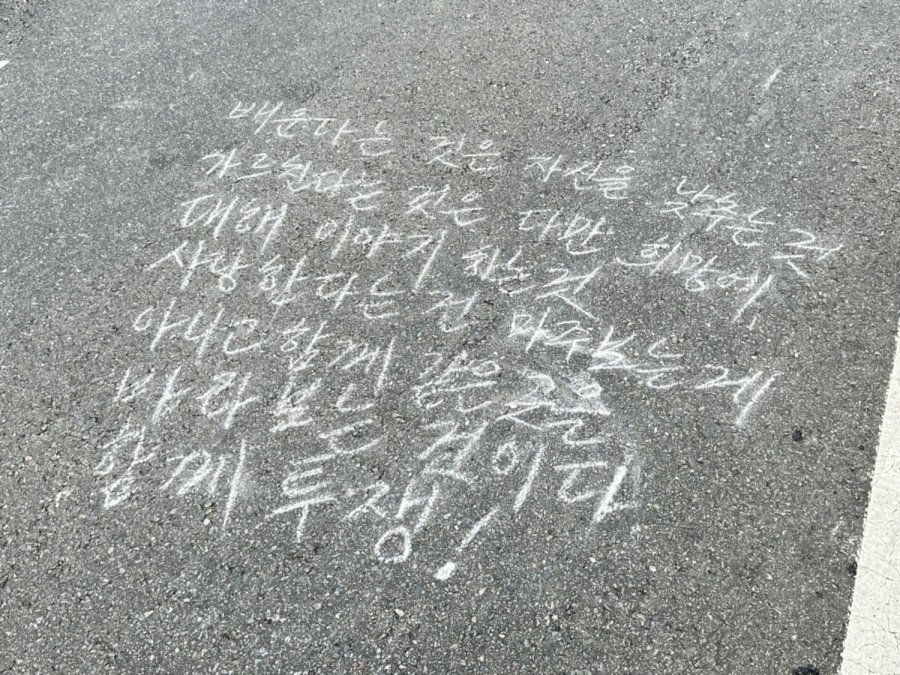 배운다는 것은 자신을 낮추는 것
가르친다는 것은 다만 희망에
대해 이야기 하는것
사랑한다는건 마주보는게
아니고 함께 같은곳을
바라보는 것이다
함께 투쟁!